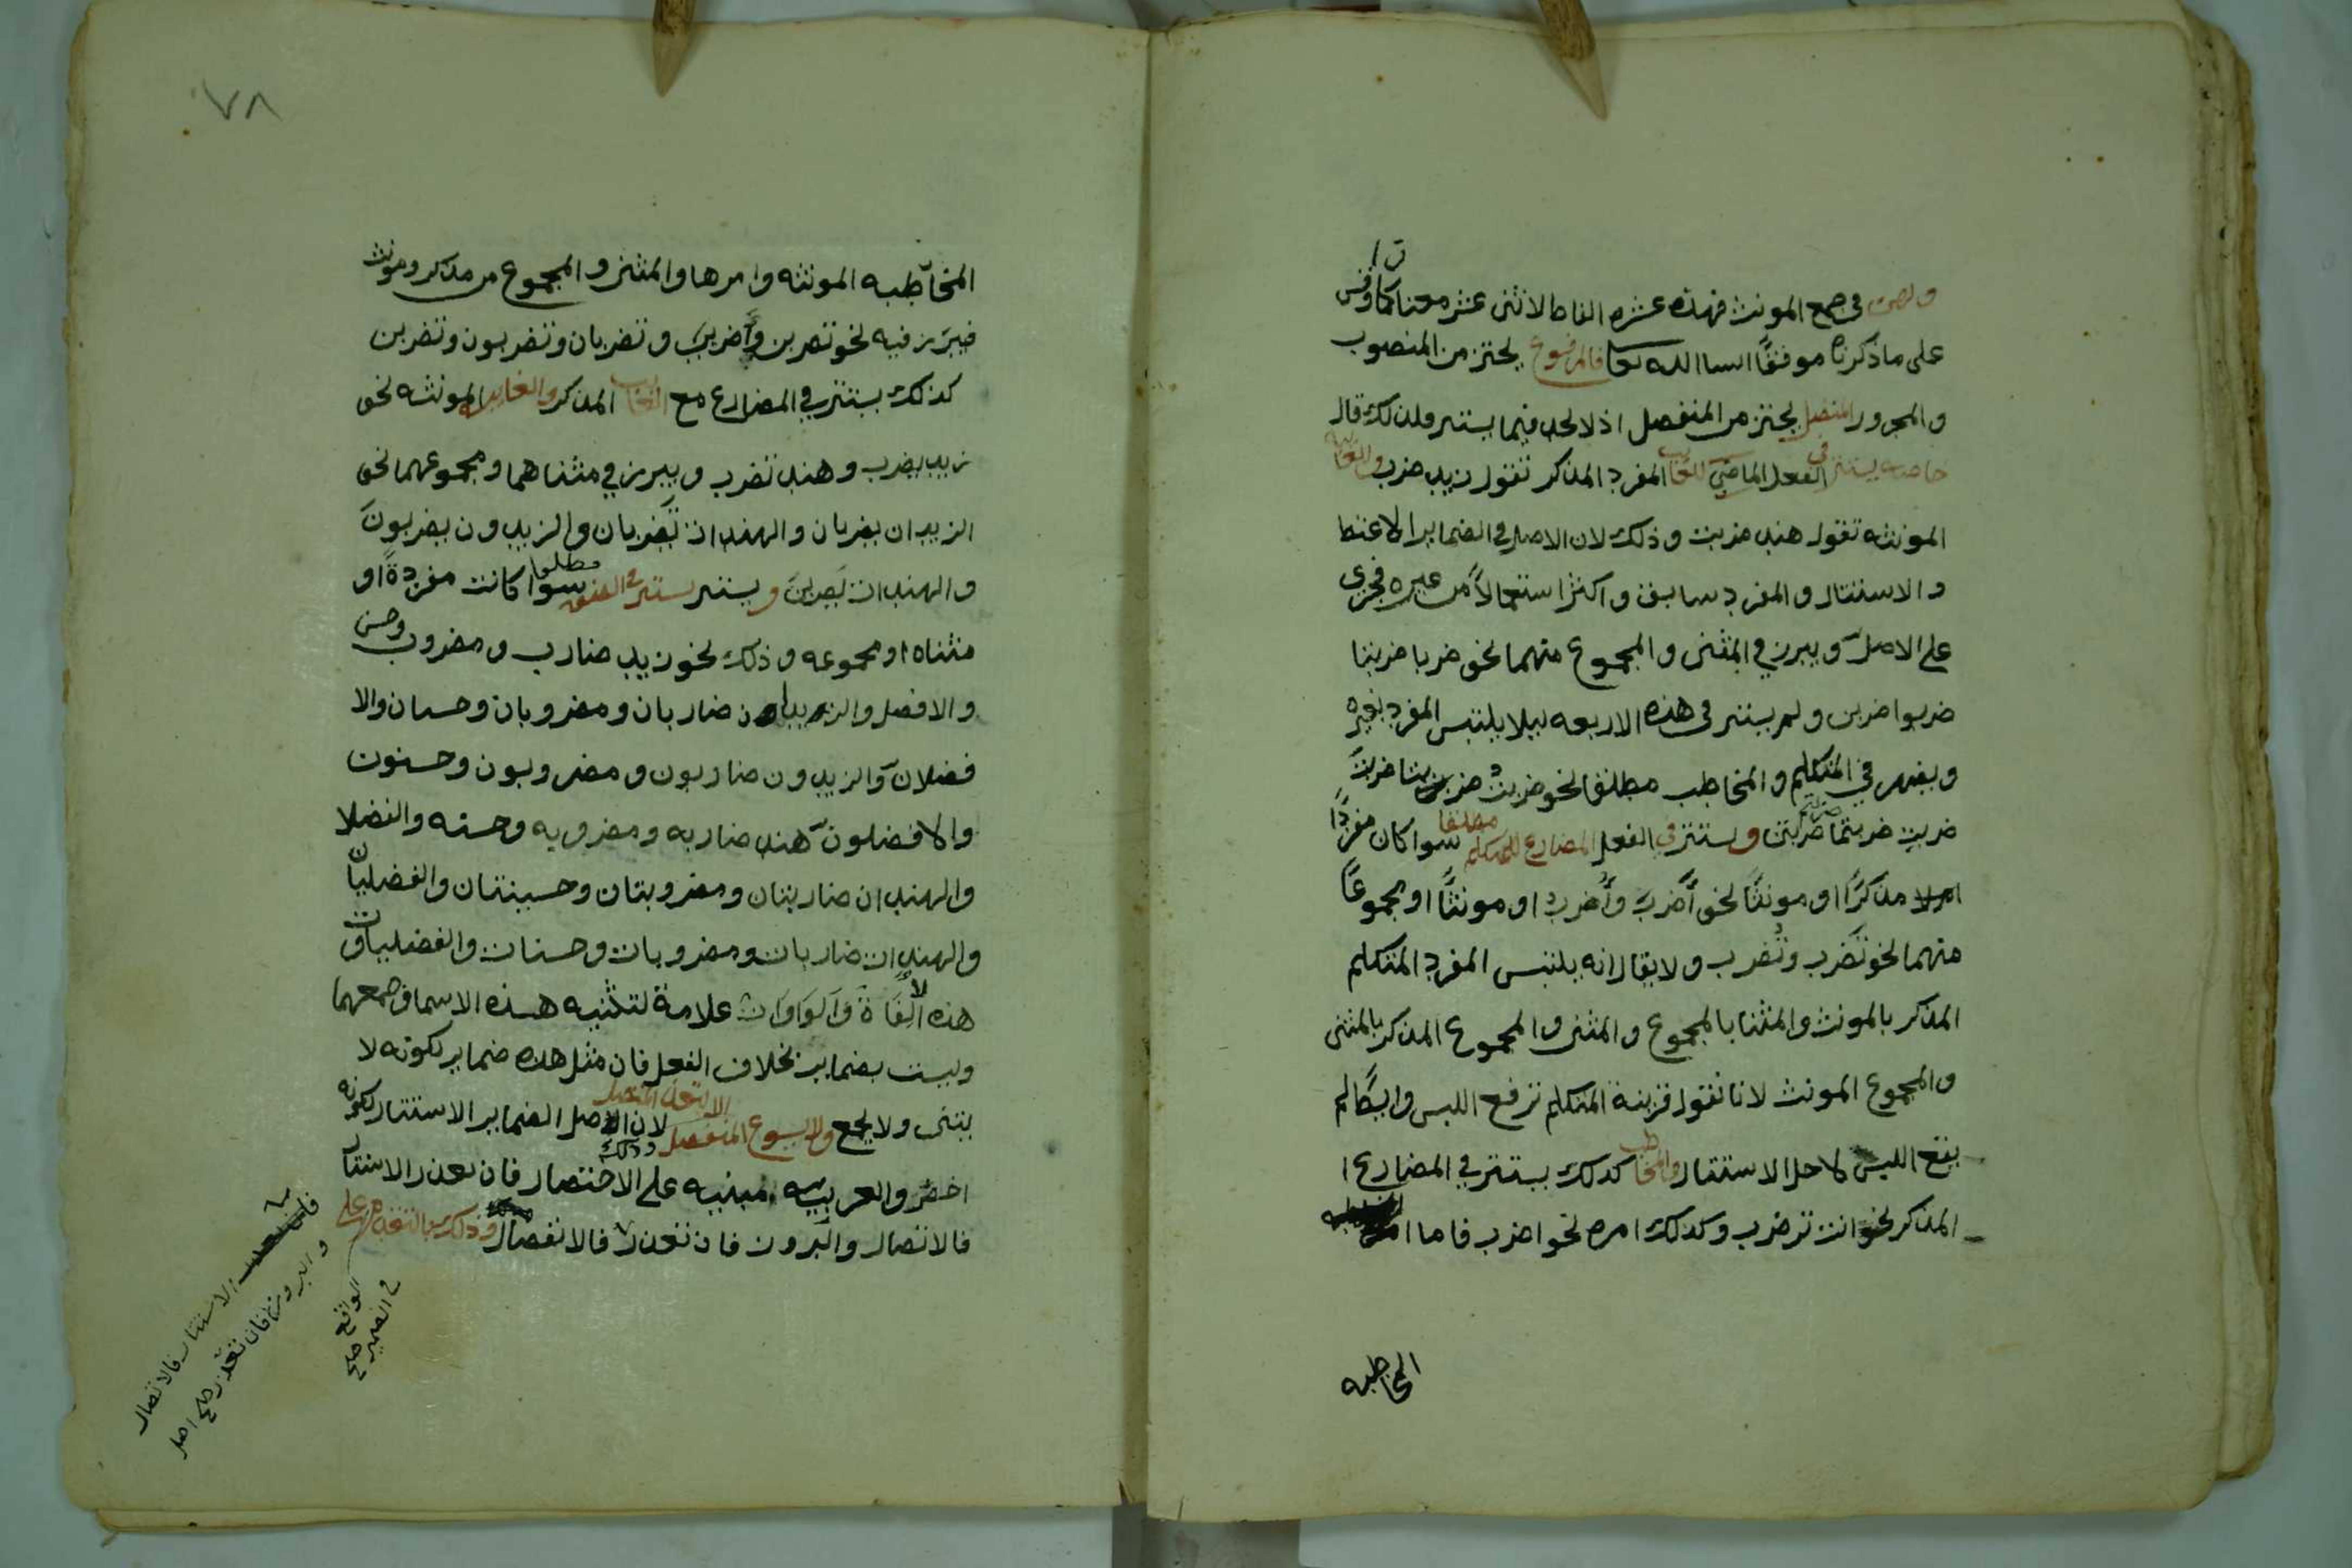 ولهن في جمع المونث فهذه عشره الفاظ لاثنى عشر معنا كما وقفت
على ما ذكرناه موفقًا انسا الله تعا فالمرفوع يحترز من المنصوب
والمجرور المتصل يحترز من المنفصل اذ لا يحل فيما يستتر ولذلك قال
خاصه يستتر في الفعل الماضي للغايب المفرد المذكر تقول زيد ضرب والغايبه
المونثه تقول هند ضربت وذلك لان الاصل في الضماير الاعتطا
والاستتار والمفرد سابق واكثر استعمالًا من غيره فجرى
على الاصل ويبرز في المثنى والمجموع منهما نحو ضربا ضربتا
ضربوا ضربن ولم يستتر في هذه الاربعه ليلا يلتبس المفرد بغيره
ويضهر في المتكلم والمخاطب مطلقا نحو ضربت ضربنا ضربتَ
ضربتِ ضربتما ضربتم ضربتن ويستتر في الفعل المضارع للمتكلم مطلقا سوا كان مفردًا
مذكرًا او مونثًا نحو أَضرب وأُضرب او مونثًا او مجموعًا
منهما نحو نَضرب ونُضرب ولا يقال انه يلتبس المفرد المتكلم
المذكر بالمونث والمثنا بالمجموع والمثنى والمجموع المذكر بالمثنى
والمجموع المونث لانا نقول قرينة المتكلم ترفع اللبس وايضًا لم
يقع اللبس لاجل الاستتار والمخاطب كذلك يستتر في المضارع ا
المذكر نحو انت تضرب وكذلك امره نحو اضرب فاما
المخاطبه
٧٨
المخاطبه المونثه وامرها والمثنى والمجموع من مذكر ومونث
فيبرز فيه نحو تضربين وأضربي وتضربان وتضربون وتضربن
كذلك يستتر في المضارع مع الغايب المذكر والغايبه المونثه نحو
زيد يضرب وهند تضرب ويبرز في مثناهما ومجموعهما نحو
الزيدان يضربان والهندان تَضربان والزيدون يضربونَ
والهندات يَضربنَ ويستتر في الصفه مطلقا سوا كانت مفردةً او
مثناه او مجموعه وذلك نحو زيد ضارب ومضروب وحسن
والافضل والزيدان ضاربان ومضروبان وحسنان والا
فضلان والزيدون ضاربون ومضروبون وحسنون
والافضلون هند ضاربه ومضروبه وحسنه والفضلا
والهندان ضاربتان ومضروبتان وحسنتان والفضليان
والهندات ضاربات ومضروبات وحسنات والفضليات و
هذه الالفاة والواوات علامة لتثنيه هذه الاسما وجمعهما
وليست بضماير بخلاف الفعل فان مثل هذه ضماير لكونه لا
يثنى ولا يجمع ولا يسوغ المنفصل الا لتعذر المتصل وذلك لان الاصل الضماير الاستتار لكونه
اخصر والعربيه مبنيه على الاختصار فان تعذر الاستتار
فالاتصال والبروز فان تعذر فالانفصال وذلك بالتقدم على
الاستتار فالاتصال
والبروز فان تعذر صح اصل
الواقع صح
في الضمير